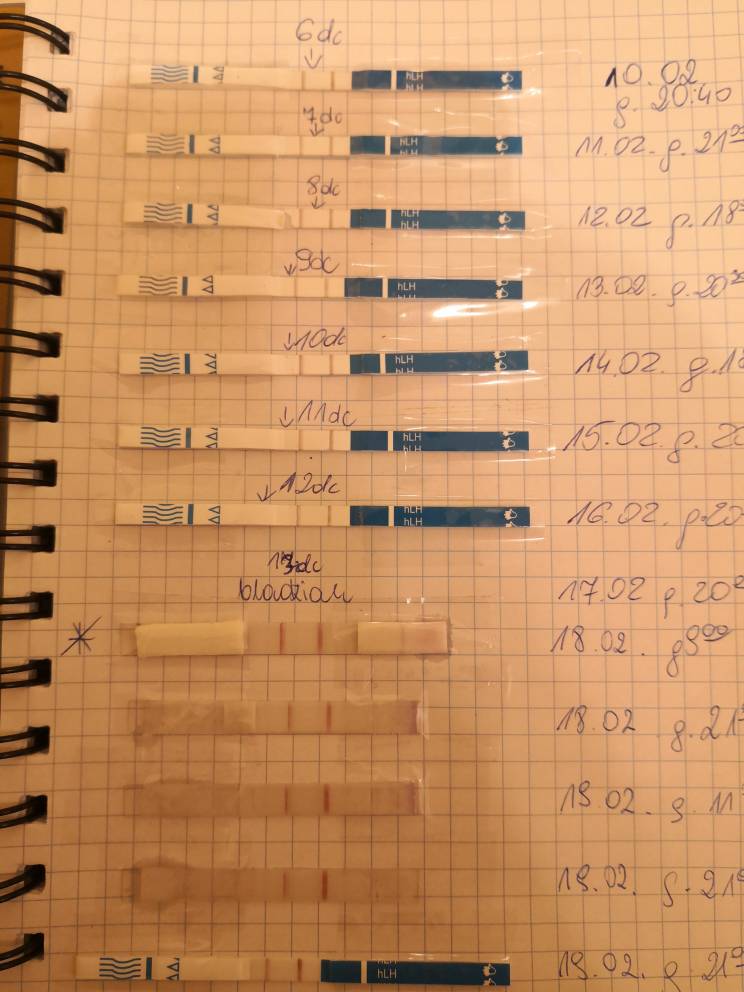 6dc
10.02
g. 20:40
hLH
hLH
7dc
11.02. g. 21
hLH
hLH
8dc
12.02 g. 18
hLH
hLH
9dc
13.02. g. 20
hLH
hLH
10dc
14.02. g.
hLH
hLH
11dc
15.02. g. 20
hLH
hLH
12dc
16.02. g.20
hLH
hLH
13dc
bladzioch
17.02 g. 20
18.02. g9⁰⁰
18.02 g. 21
19.02. g. 11
19.02. g. 21
hLH
hLH
19.02. g. 21